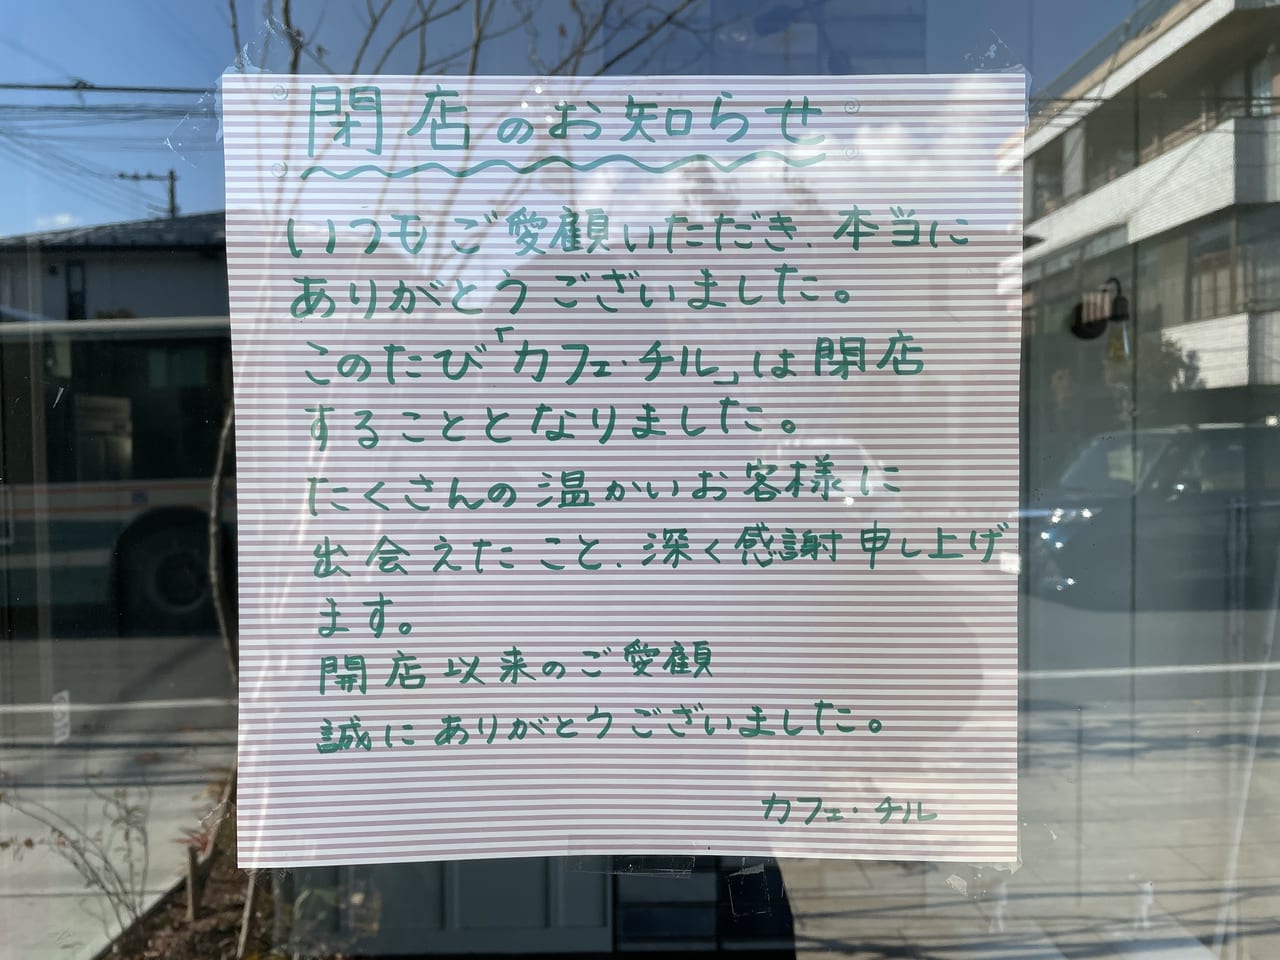 閉店のお知らせ
いつもご愛顧いただき、本当に
ありがとうございました。
このたび「カフェ・チル」は閉店
することとなりました。
たくさんの温かいお客様に
出会えたこと、深く感謝申し上げ
ます。
開店以来のご愛顧
誠にありがとうございました。
カフェ・チル